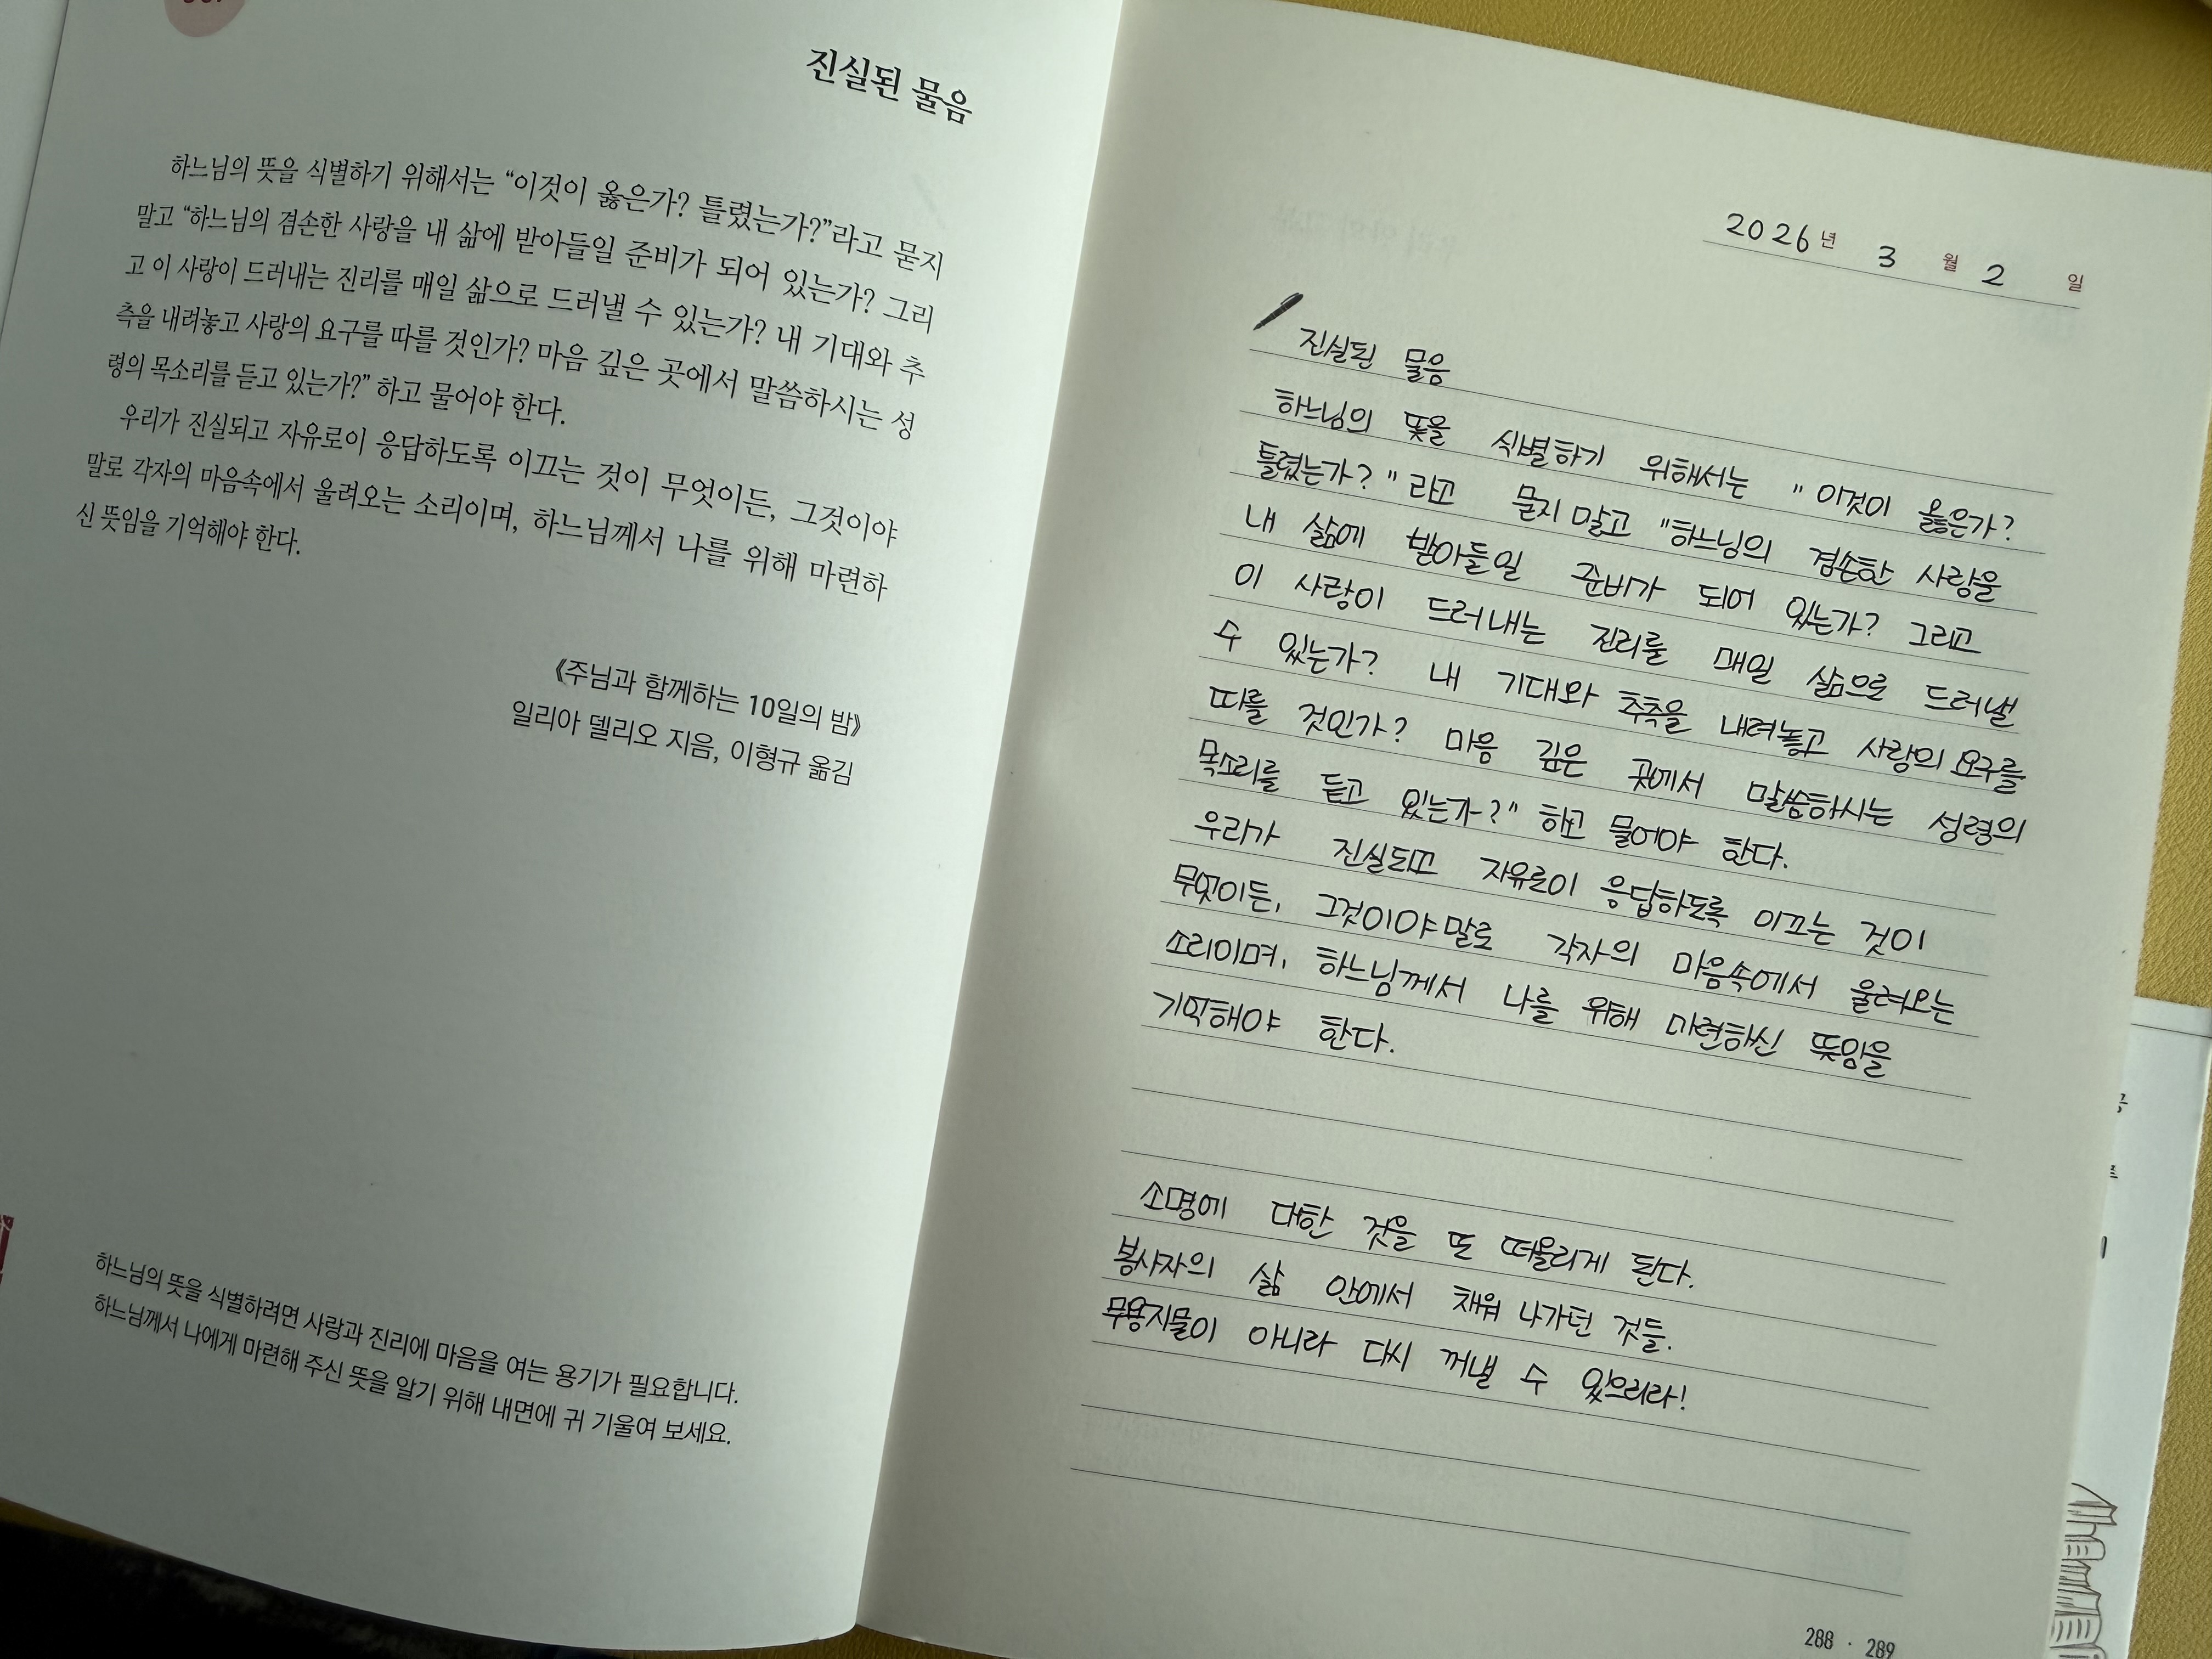 진실된 물음
하느님의 뜻을 식별하기 위해서는 “이것이 옳은가? 틀렸는가?”라고 묻지
말고 “하느님의 겸손한 사랑을 내 삶에 받아들일 준비가 되어 있는가? 그리
고 이 사랑이 드러내는 진리를 매일 삶으로 드러낼 수 있는가? 내 기대와 추
측을 내려놓고 사랑의 요구를 따를 것인가? 마음 깊은 곳에서 말씀하시는 성
령의 목소리를 듣고 있는가?” 하고 물어야 한다.
우리가 진실되고 자유로이 응답하도록 이끄는 것이 무엇이든, 그것이야
말로 각자의 마음속에서 울려오는 소리이며, 하느님께서 나를 위해 마련하
신 뜻임을 기억해야 한다.
《주님과 함께하는 10일의 밤》
일리아 델리오 지음, 이형규 옮김
하느님의 뜻을 식별하려면 사랑과 진리에 마음을 여는 용기가 필요합니다.
하느님께서 나에게 마련해 주신 뜻을 알기 위해 내면에 귀 기울여 보세요.
2026년 3월 2일
진실된 물음
하느님의 뜻을 식별하기 위해서는 "이것이 옳은가?
틀렸는가?"라고 묻지 말고 "하느님의 겸손한 사랑을
내 삶에 받아들일 준비가 되어 있는가? 그리고
이 사랑이 드러내는 진리를 매일 삶으로 드러낼
수 있는가? 내 기대와 추측을 내려놓고 사랑의 요구를
따를 것인가? 마음 깊은 곳에서 말씀하시는 성령의
목소리를 듣고 있는가?" 하고 물어야 한다.
우리가 진실되고 자유로이 응답하도록 이끄는 것이
무엇이든, 그것이야말로 각자의 마음속에서 울려오는
소리이며, 하느님께서 나를 위해 마련하신 뜻임을
기억해야 한다.
소명에 대한 것을 또 떠올리게 된다.
봉사자의 삶 안에서 채워 나가던 것들.
무용지물이 아니라 다시 꺼낼 수 있으리라!
288 · 289